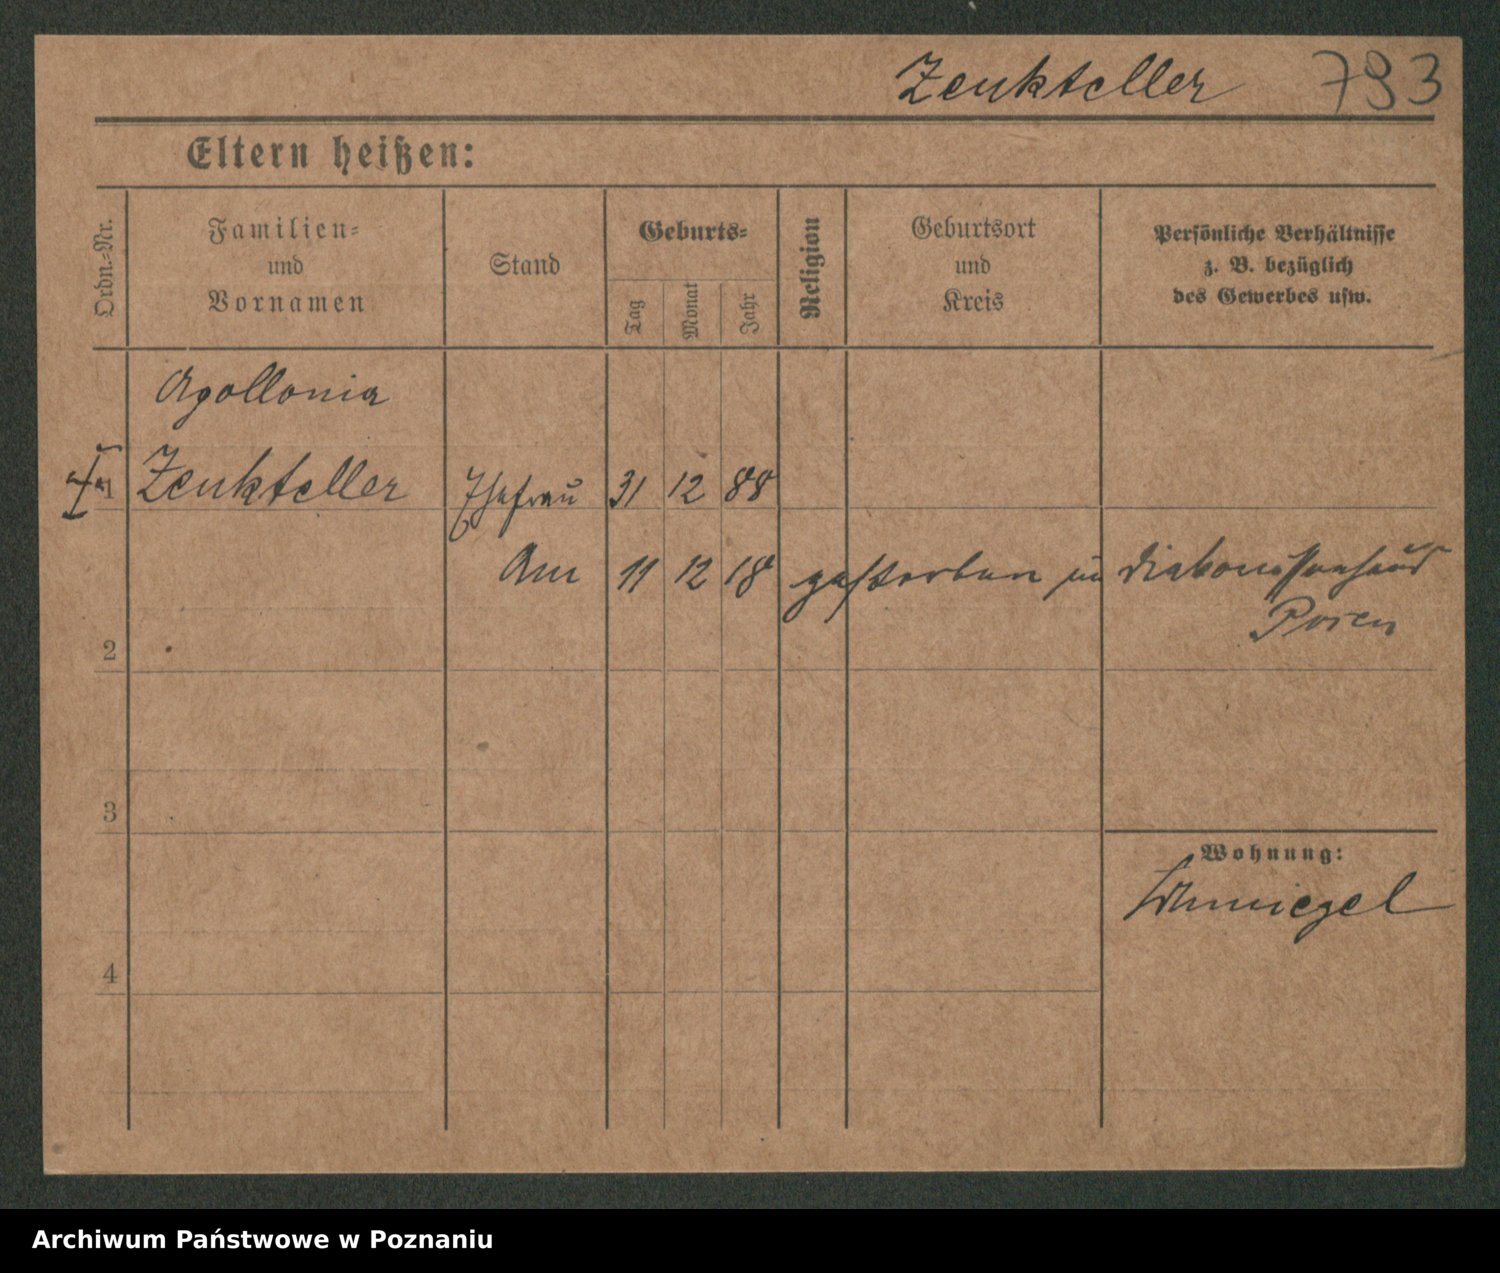 Zenkteller 793
Eltern heißen:
Ordn.-Nr.
Familien-
und
Vornamen
Stand
Geburts-
Tag
Monat
Jahr
Religion
Geburtsort
und
Kreis
Persönliche Verhältnisse
z. B. bezüglich
des Gewerbes usw.
Apollonia
1 Zenkteller Ehefrau 31 12 88
Am 11 12 18 gestorben im Diakonissenhaus
Posen
2
3
Wohnung:
Schmiegel
4
Archiwum Państwowe w Poznaniu